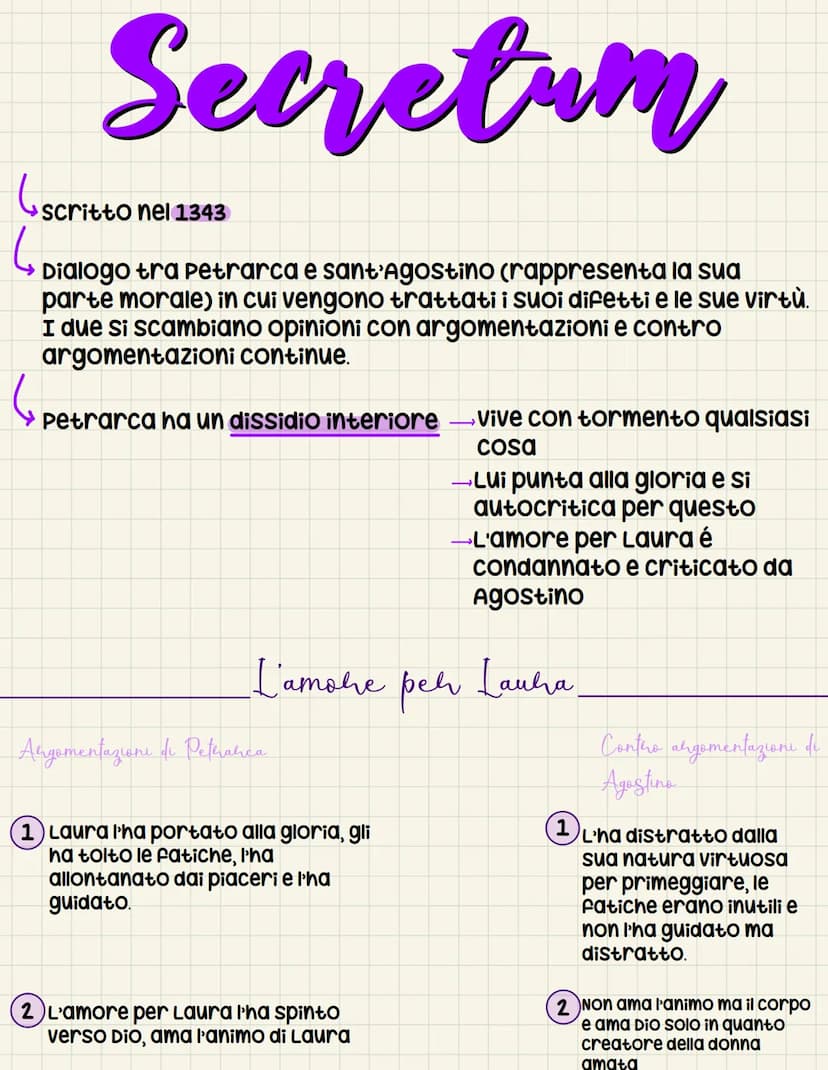 Secretum
scritto nel 1343
Dialogo tra Petrarca e sant'Agostino (rappresenta la sua
parte morale) in cui vengono trattati i suoi difetti e le sue virtù.
I due si scambiano opinioni con argomentazioni e contro
argomentazioni continue.
Petrarca ha un dissidio interiore → vive con tormento qualsiasi
cosa
→ Lui punta alla gloria e si
autocritica per questo
→ L'amore per Laura é
condannato e criticato da
Agostino
L'amore per Laura
Argomentazioni di Petrarca
Contro argomentazioni di
Agostino
1 Laura l'ha portato alla gloria, gli
ha tolto le fatiche, l'ha
allontanato dai piaceri e l'ha
guidato.
1 L'ha distratto dalla
sua natura virtuosa
per primeggiare, le
fatiche erano inutili e
non l'ha guidato ma
distratto.
2 L'amore per Laura l'ha spinto
verso Dio, ama l'animo di Laura
2 Non ama l'animo ma il corpo
e ama Dio solo in quanto
creatore della donna
amata